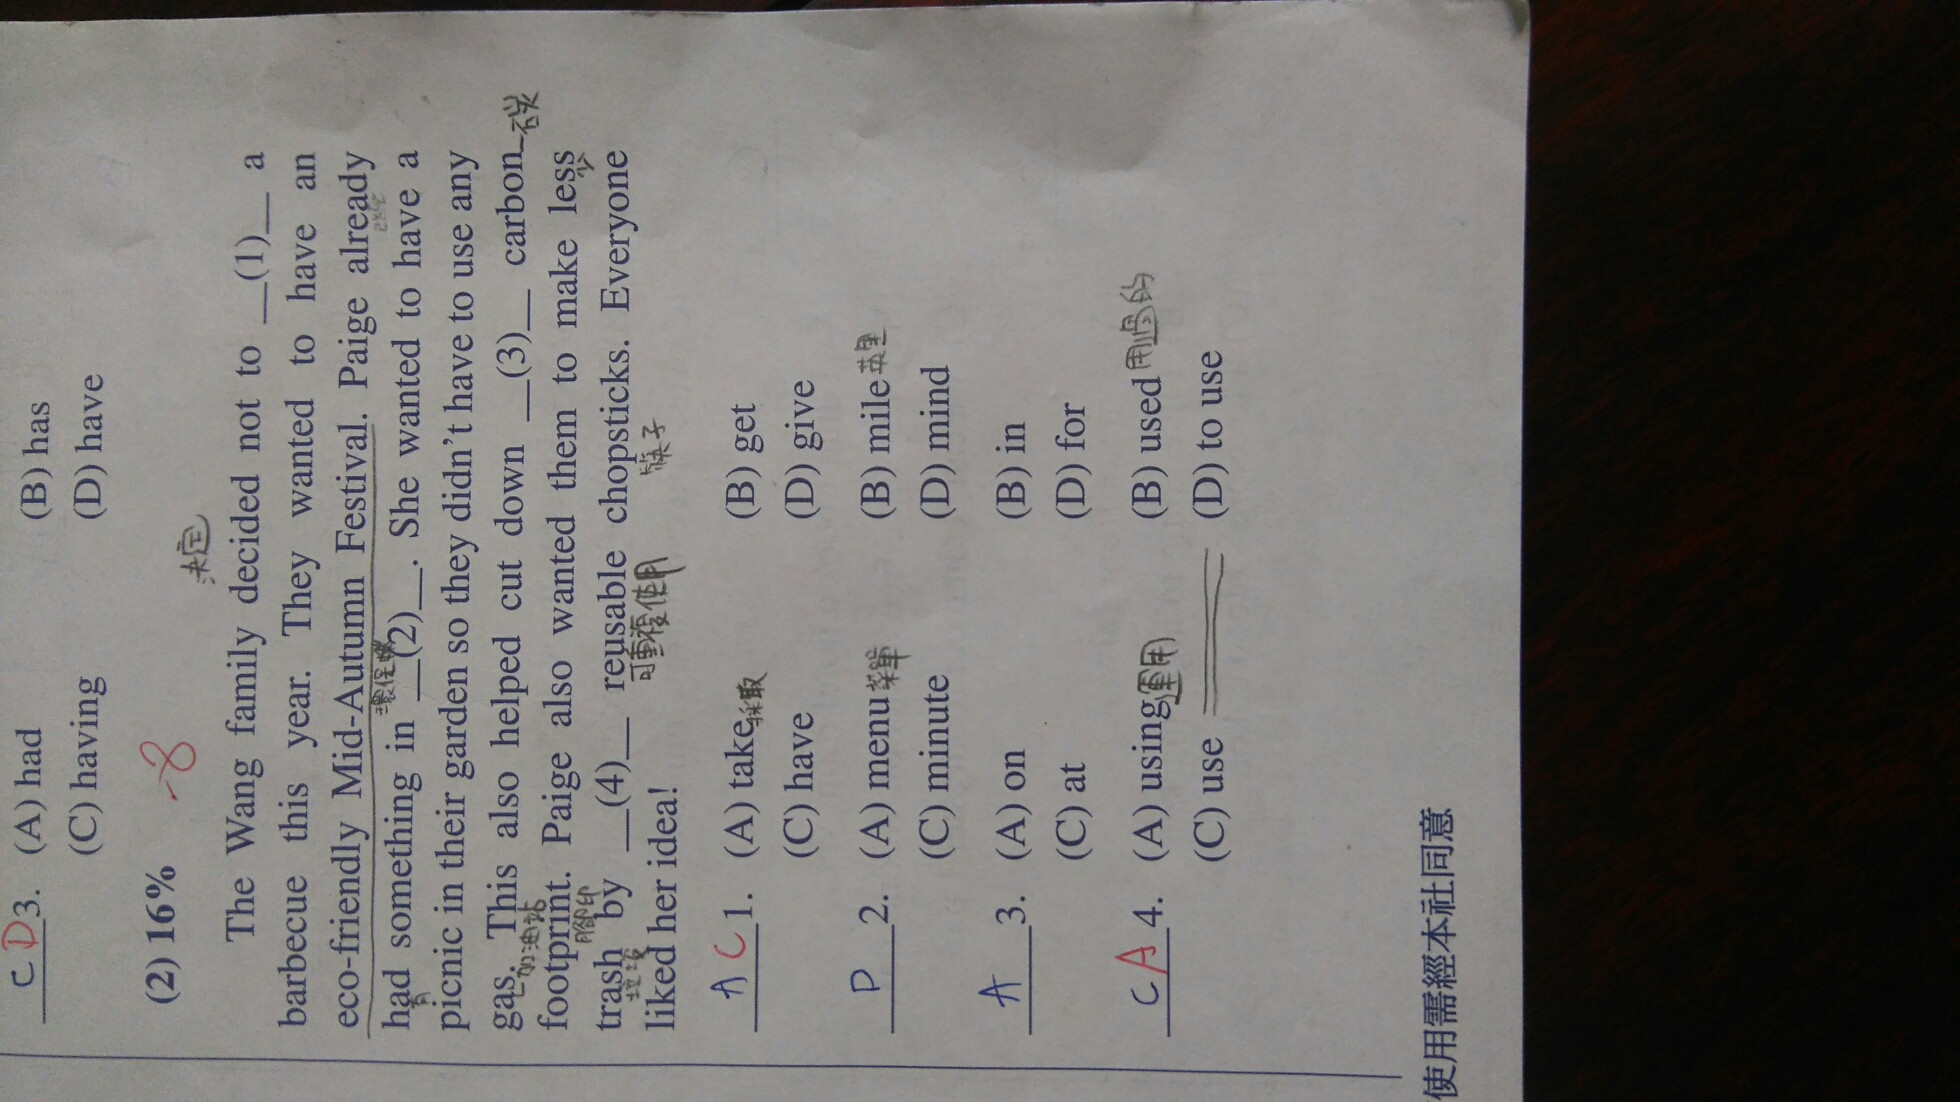 C D 3. (A) had (B) has
(C) having (D) have
(2) 16% -8
決定
The Wang family decided not to __(1)__ a
barbecue this year. They wanted to have an
eco-friendly Mid-Autumn Festival. Paige already
環保 已經
had something in __(2)__. She wanted to have a
有
picnic in their garden so they didn't have to use any
gas. This also helped cut down __(3)__ carbon 碳
加油站
footprint. Paige also wanted them to make less
腳印 少
trash by __(4)__ reusable chopsticks. Everyone
垃圾 可重複使用 筷子
liked her idea!
A C 1. (A) take 採取 (B) get
(C) have (D) give
D 2. (A) menu 菜單 (B) mile 英里
(C) minute (D) mind
A 3. (A) on (B) in
(C) at (D) for
C A 4. (A) using 運用 (B) used 用過的
(C) use (D) to use
使用需經本社同意